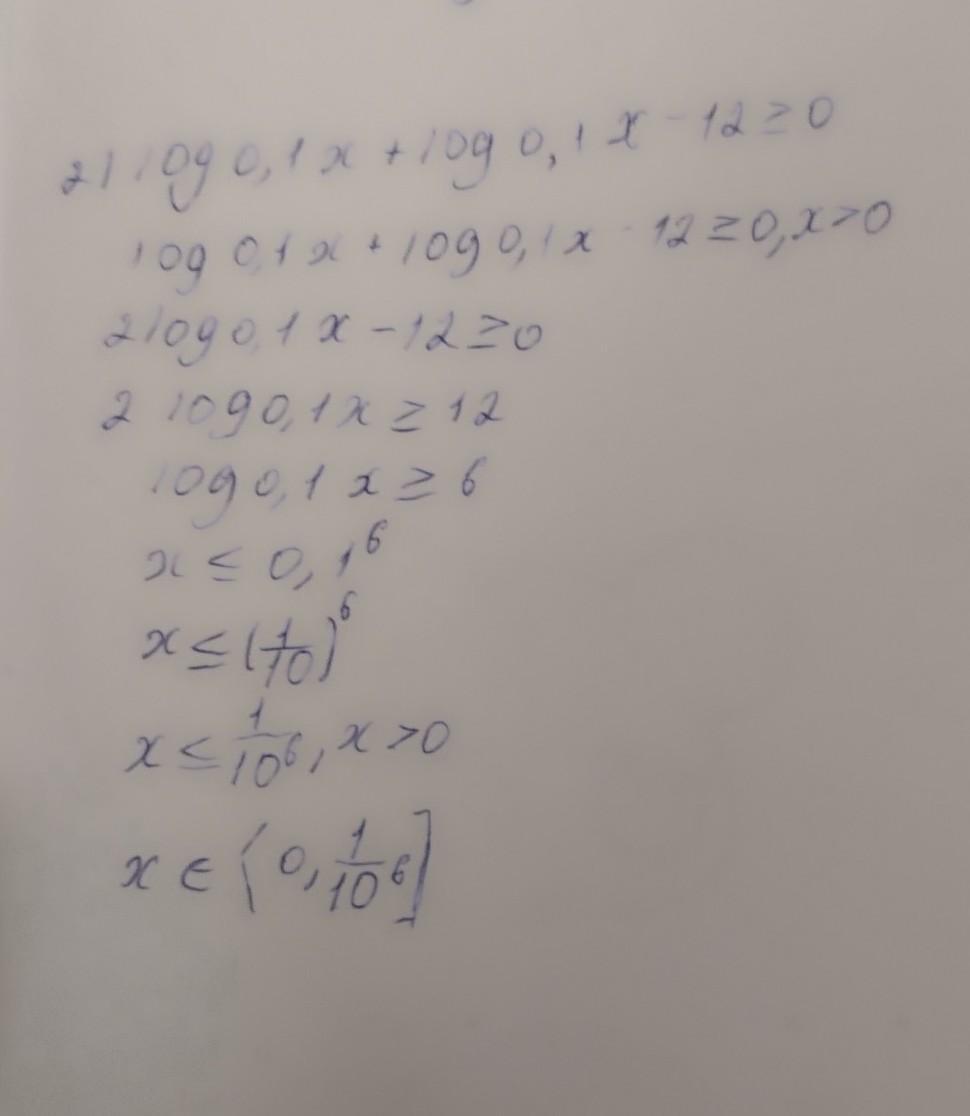 2) log 0,1 x + log 0,1 x - 12 ≥ 0
log 0,1 x + log 0,1 x - 12 ≥ 0, x > 0
2 log 0,1 x - 12 ≥ 0
2 log 0,1 x ≥ 12
log 0,1 x ≥ 6
x ≤ 0,1⁶
x ≤ (1/10)⁶
x ≤ 1/10⁶, x > 0
x ∈ ⟨0, 1/10⁶]